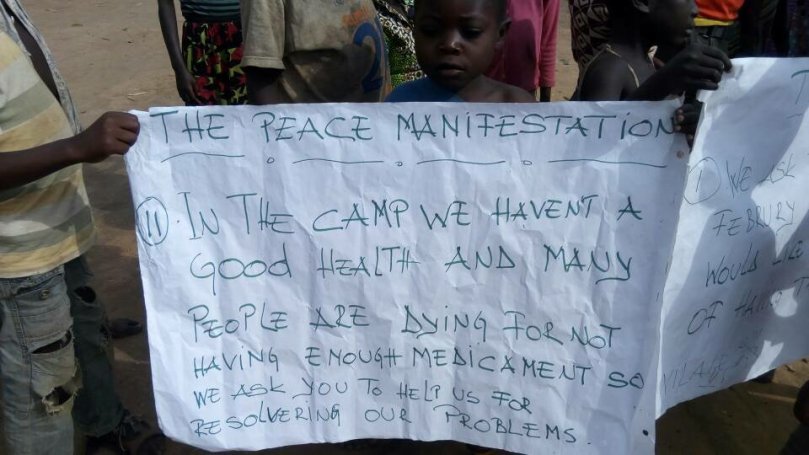 THE PEACE MANIFESTATION
11. IN THE CAMP WE HAVENT A
GOOD HEALTH AND MANY
PEOPLE ARE DYING FOR NOT
HAVING ENOUGH MEDICAMENT SO
WE ASK YOU TO HELP US FOR
RESOLVERING OUR PROBLEMS.
T
1 WE ASK
FEBRURY
WOULD LIKE
OF
2